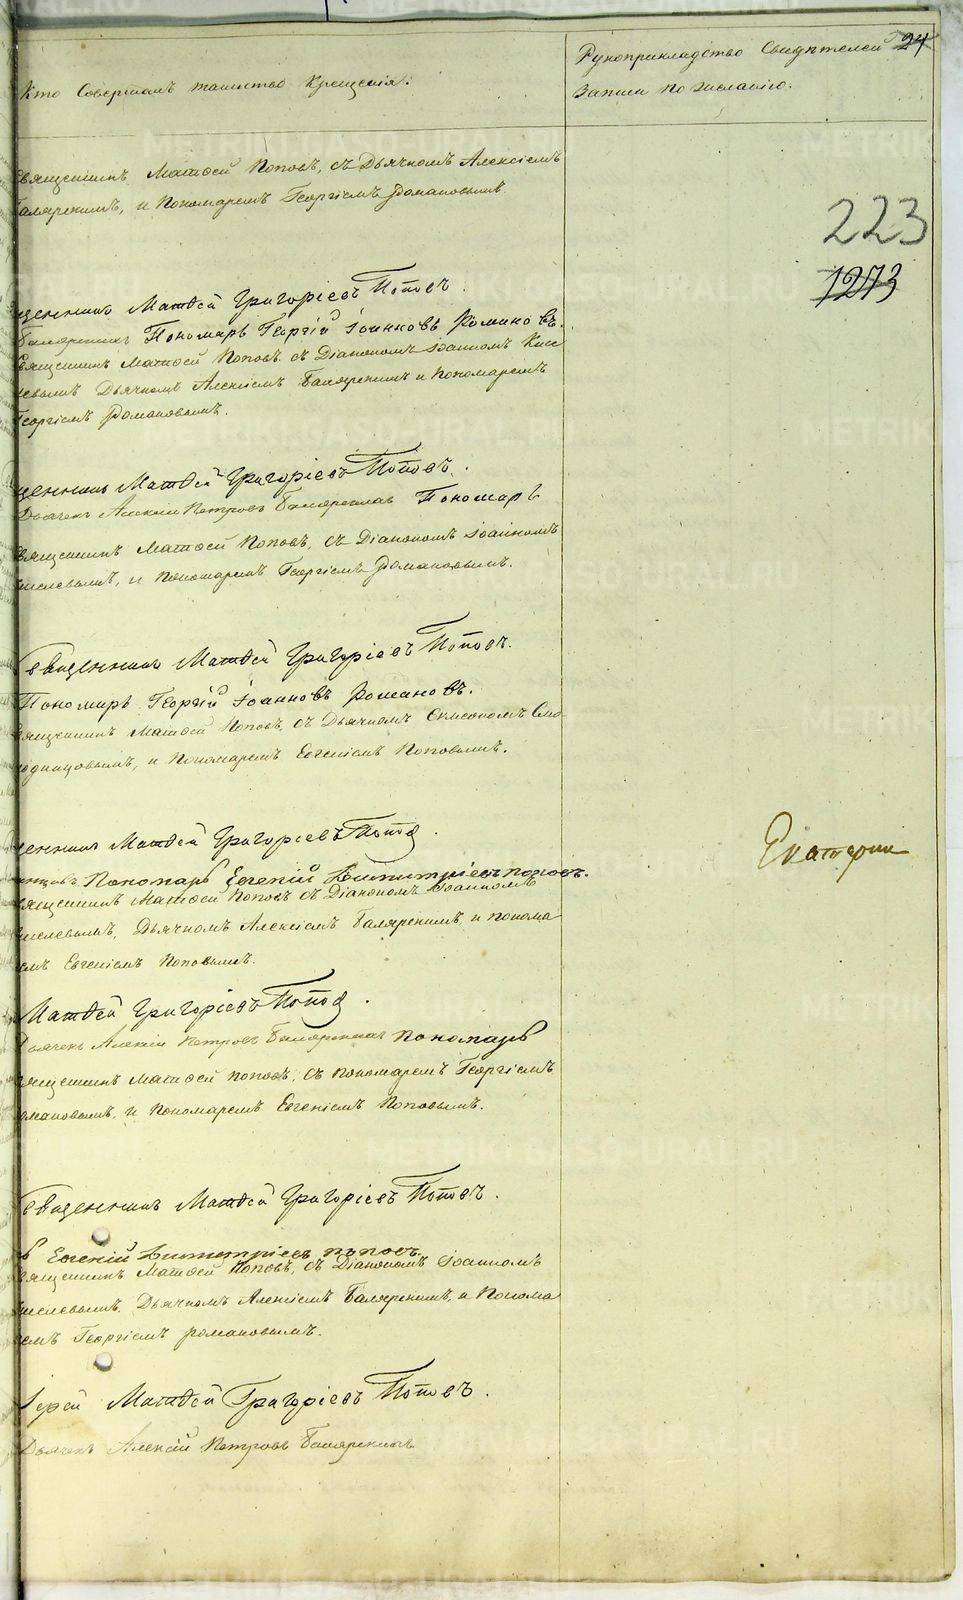 Кто Совершалъ таинство Крещенія.
Рукоприкладство Свидѣтелей
Записи по желанію.
24
223
1273
Священникъ Матѳей Поповъ, съ Дьячкомъ Алексіемъ
и Пономаремъ Георгіемъ Романовымъ.
Матѳей Григоріевъ Поповъ.
Пономарь Георгій Іоанновъ Романовъ.
Священникъ Матѳей Поповъ съ Діакономъ Іоанномъ Кисе
левымъ Дьячкомъ Алексіемъ и Пономаремъ
Георгіемъ Романовымъ.
Матѳей Григоріевъ Поповъ.
Дьячекъ Алексій Петровъ Пономарь
Священникъ Матѳей Поповъ, съ Діакономъ Іоанномъ
Киселевымъ, и Пономаремъ Георгіемъ Романовымъ.
Священникъ Матѳей Григоріевъ Поповъ.
Пономарь Георгій Іоанновъ Романовъ.
Священникъ Матѳей Поповъ, съ Дьячкомъ
и Пономаремъ Евгеніемъ Поповымъ.
Матѳей Григоріевъ Попов
Екатерин
Пономарь Евгеній Димитріевъ Поповъ.
Священникъ Матѳей Поповъ съ Діакономъ Іоанномъ
Киселевымъ, Дьячкомъ Алексіемъ и Понома
ремъ Евгеніемъ Поповымъ.
Матѳей Григоріевъ Попов
Дьячекъ Алексій Петровъ Пономарь
Священникъ Матѳей Поповъ, съ Пономаремъ Георгіемъ
Романовымъ, и Пономаремъ Евгеніемъ Поповымъ.
Священникъ Матѳей Григоріевъ Поповъ.
Евгеній Димитріевъ Поповъ.
Священникъ Матѳей Поповъ, съ Діакономъ Іоанномъ
Киселевымъ, Дьячкомъ Алексіемъ и Понома
ремъ Георгіемъ Романовымъ.
Іерей Матѳей Григоріевъ Поповъ.
Дьячекъ Алексій Петровъ
METRIKI.GASO-URAL.RU